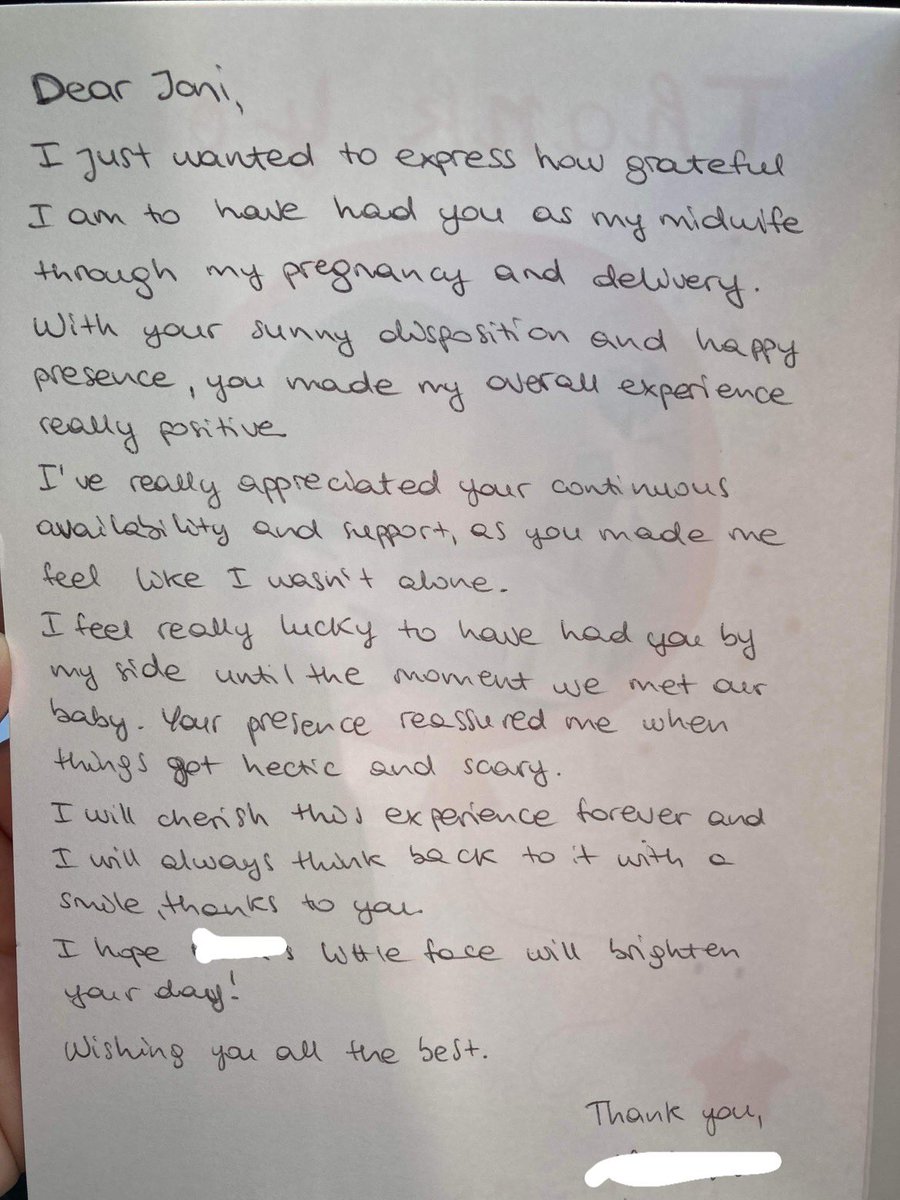 Dear Joni,
I just wanted to express how grateful
I am to have had you as my midwife
through my pregnancy and delivery.
With your sunny disposition and happy
presence, you made my overall experience
really positive
I've really appreciated your continuous
availability and support, as you made me
feel like I wasn't alone.
I feel really lucky to have had you by
my side until the moment we met our
baby. Your presence reassured me when
things got hectic and scary.
I will cherish this experience forever and
I will always think back to it with a
smile, thanks to you.
I hope little face will brighten
your day!
Wishing you all the best.
Thank you,